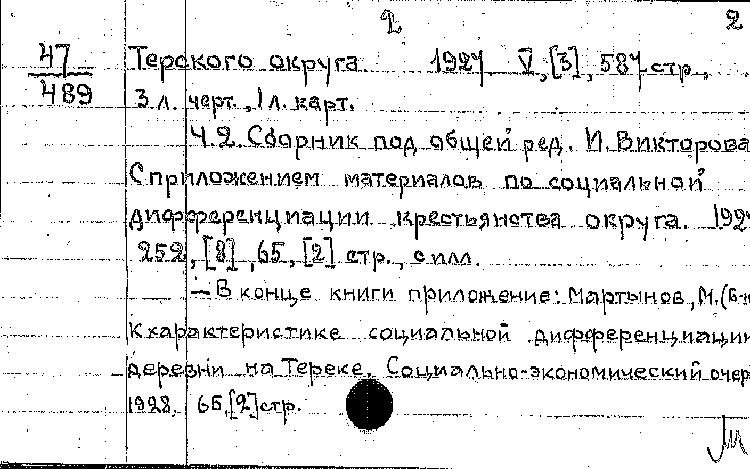 2 2
47 Терского округа. 1927 V, [3], 587 стр.,
489
3 л. черт., 1 л. карт.
Ч.2. Сборник под общей ред. И. Викторова
С приложением материалов по социальной
дифференциации крестьянства округа. 192
252, [8], 65, [2] стр., с илл.
— В конце книги приложение: Мартынов, М. (Б-
К характеристике социальной дифференциации
деревни на Тереке. Социально-экономический очер
1928. 65, [2] стр.